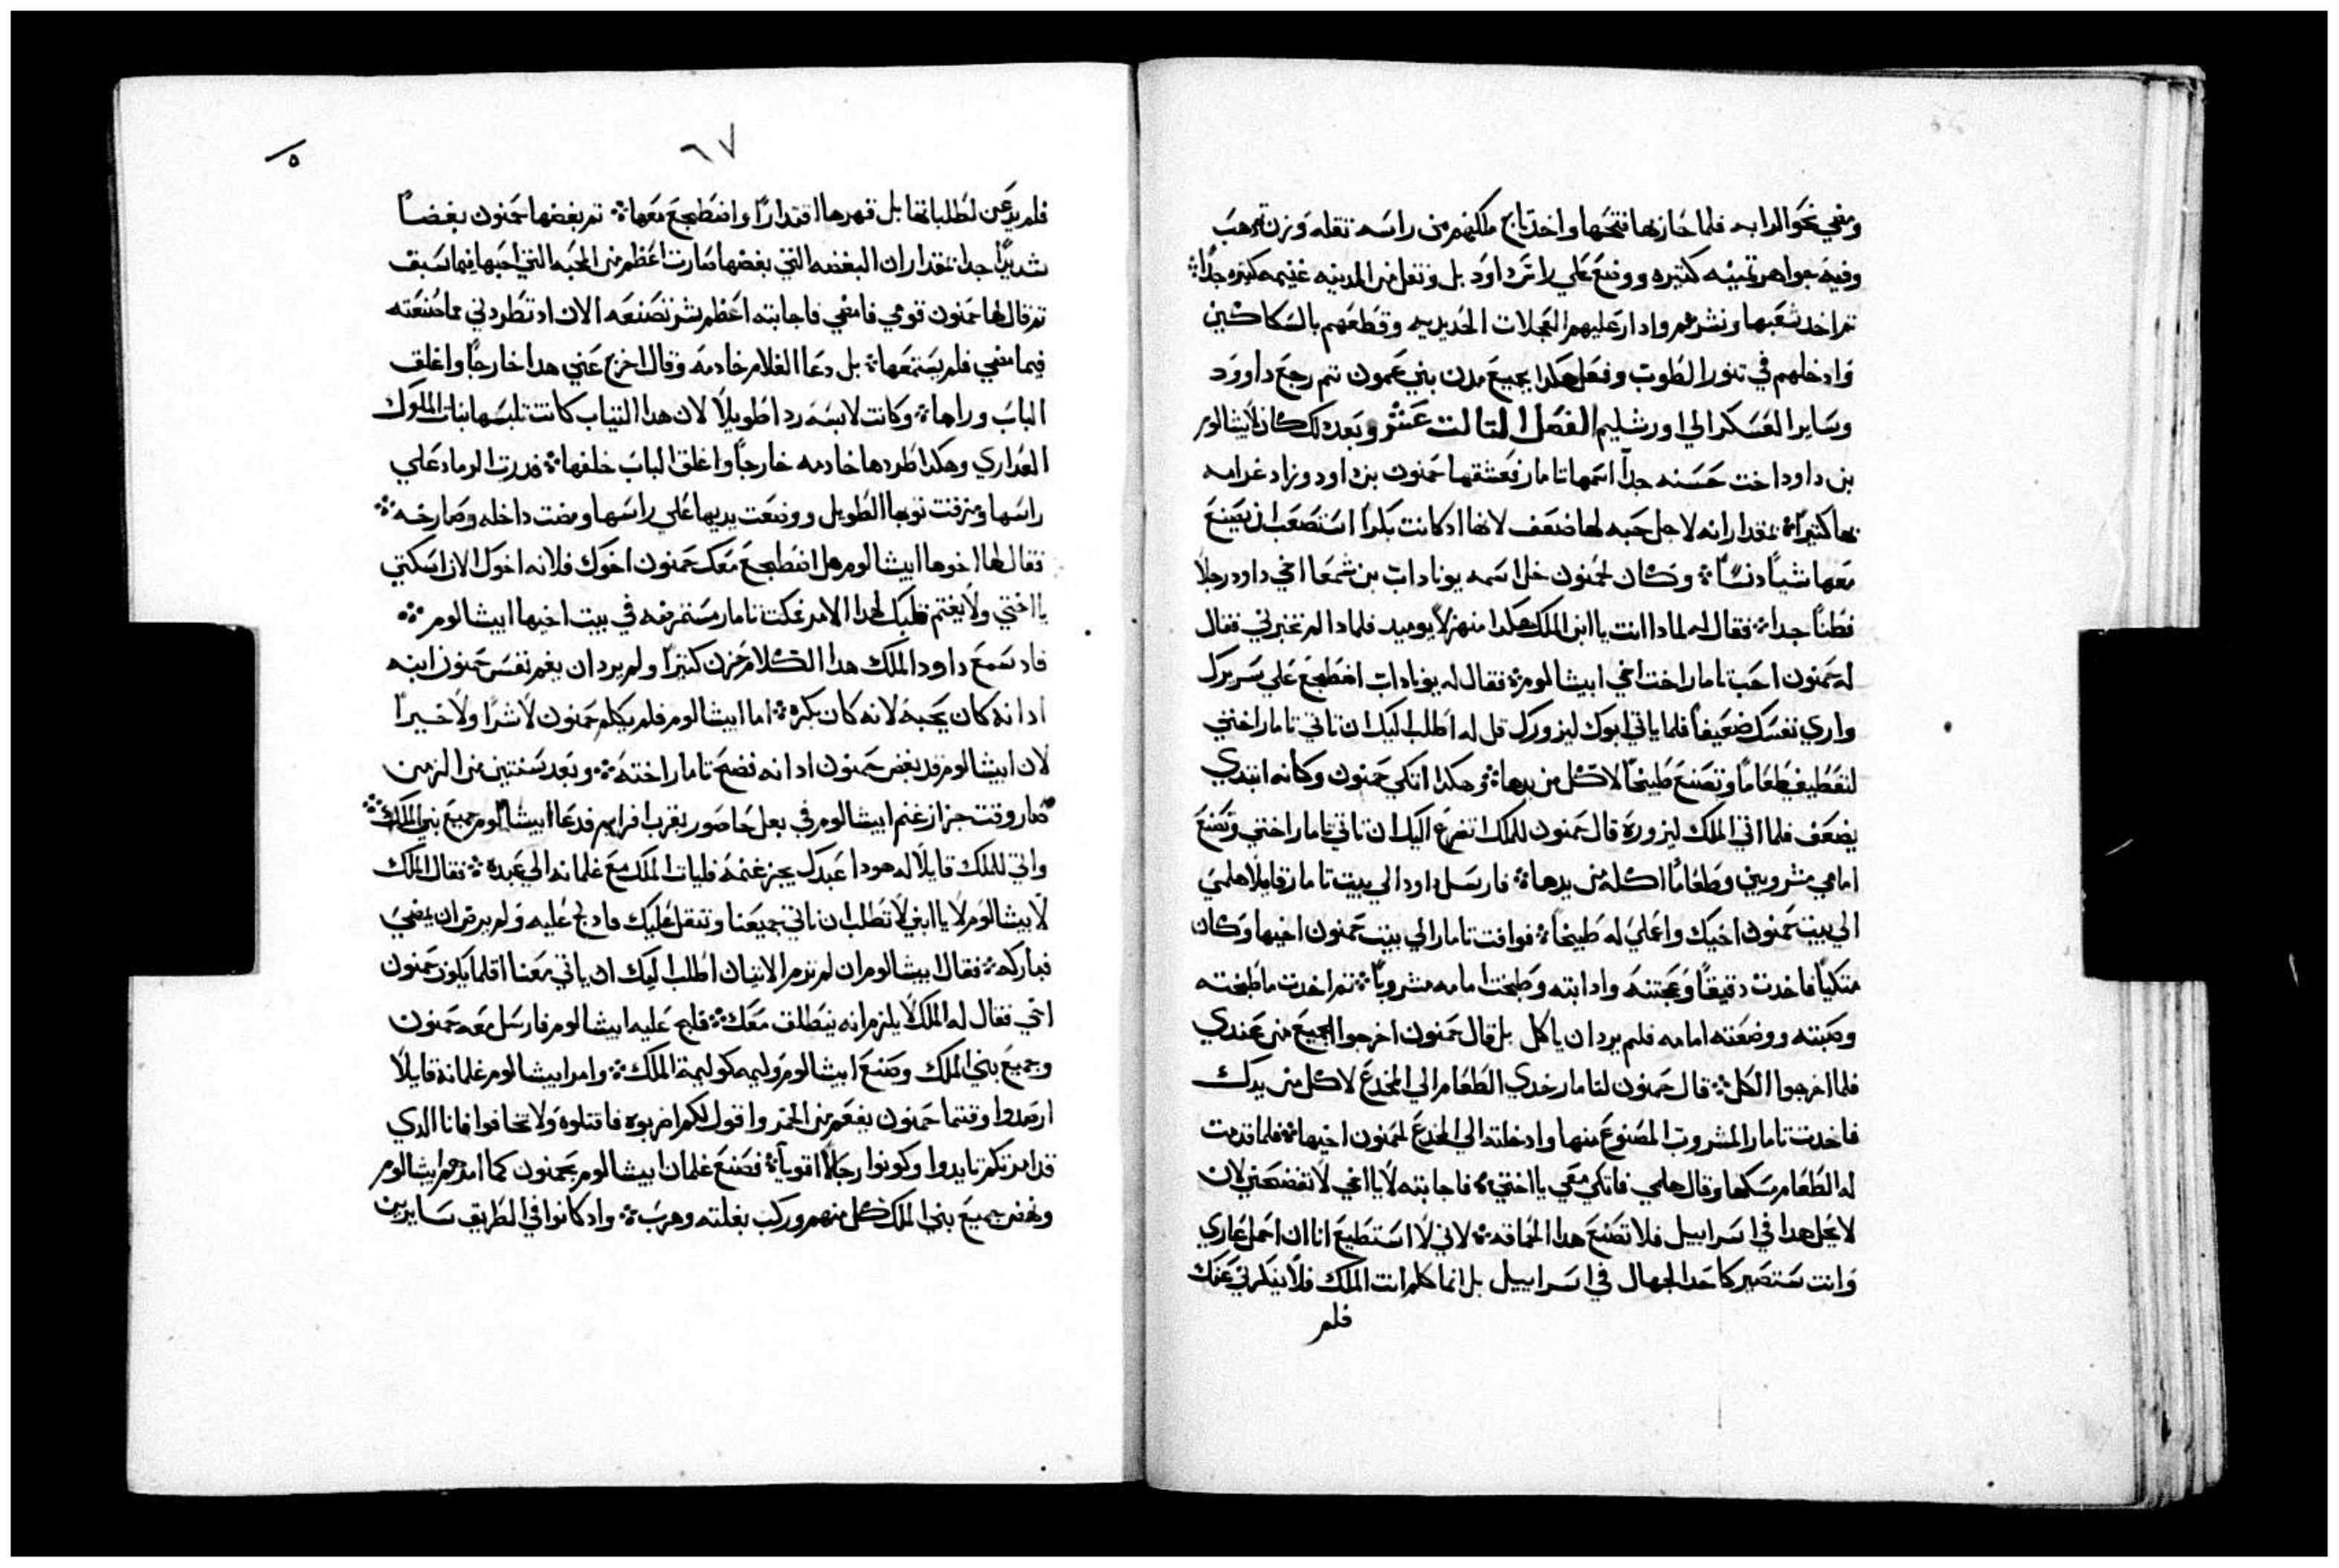 ومضي نحو الرابه فلما حازبها فتحها واخد تاج ملكهم من راسه تقله وزن تم دهب
وفيه جواهر تمينه كتيره ووضع علي راس داود بل ونقل من المدينه غنيمه كتيره جداً
تم اخد شعبها ونشرهم وادار عليهم العجلات الحديديه وقطعهم بالسكاكين
وادخلهم في تنور الطوب وفعل هكدا بجميع مدن بني عمون تم رجع داوود
وساير العسكر الي اورشليم الفصل التالت عشر وبعد دلك كان لابيشالوم
بن داود اخت حسنه جداً اسمها تامار فعشقها حمنون بن داود وزاد غرامه
بها كتيراً بمقدار انه لاجل حبه لها ضعف لانها اد كانت بكراً استصعب ان يصنع
معها شياً دنساً وكان لحمنون خل اسمه يوناداب بن شمعا اخي داود رجلاً
فطناً جداً فقال له لمادا انت يا ابن الملك هكدا منهزلاً يوميد فلمادا لم تخبرني فقال
له حمنون احب تامار اخت اخي ابيشالوم فقال له يوناداب اضطجع علي سريرك
واري نفسك ضعيفاً فلما ياتي ابوك ليزورك قل له اطلب اليك ان تاتي تامار اختي
لتعطيني طعاماً وتصنع طبيخاً لاكل من يدها وهكدا اتكي حمنون وكانه ابتدي
يضعف فلما اتي الملك ليزوره قال حمنون للملك اتضرع اليك ان تاتي تامار اختي وتصنع
امامي مشروبين وطعاماً اكله من يدها فارسل داود الي بيت تامار قايلاً هلمي
الي بيت حمنون اخيك واعملي له طبيخاً فوافت تامار الي بيت حمنون اخيها وكان
متكياً فاخدت دقيقاً وعجنته وادابته وطبخت امامه مشروباً تم اخدت ما طبخته
وصبته ووضعته امامه فلم يرد ان ياكل بل قال حمنون اخرجوا الجميع من عندي
فلما اخرجوا الكل قال حمنون لتامار خدي الطعام الي المخدع لاكل من يدك
فاخدت تامار المشروب المصنوع منها وادخلته الي المخدع لحمنون اخيها فلما قدمت
له الطعام مسكها وقال هلمي فاتكي معي يا اختي فاجابته لا يا اخي لا تفضحني لان
لا يحل هدا في اسراييل فلا تصنع هدا الحماقه لاني لا استطيع انا ان احمل عاري
وانت ستصير كاحد الجهال في اسراييل بل انما كلم انت الملك فلا ينكرني عنك
فلم
٦٧
٥
فلم يدعن لطلباتها بل قهرها اقتداراً واضطجع معها تم بغضها حمنون بغضاً
شديداً جداً بمقدار ان البغضه التي بغضها صارت اعظم من المحبه التي احبها فيما سبق
تم قال لها حمنون قومي فامضي فاجابته اعظم شر تصنعه الان اد تطردني مما صنعته
فيما مضي فلم يستمعها بل دعا الغلام خادمه وقال اخرج عني هدا خارجاً واغلق
الباب وراها وكانت لابسه ردا طويلاً لان هدا التياب كانت تلبسها بنات الملوك
العداري وهكدا طردها خادمه خارجاً واغلق الباب خلفها فدرت الرماد علي
راسها ومزقت توبها الطويل ووضعت يديها علي راسها ومضت داخله وصارخه
فقال لها اخوها ابيشالوم هل اضطجع معك حمنون اخوك فلانه اخوك الان اسكتي
يا اختي ولا يغتم قلبك لهدا الامر فمكت تامار مستمرضه في بيت اخيها ابيشالوم
فاد سمع داود الملك هدا الكلام حزن كتيراً ولم يرد ان يغم نفس حمنون ابنه
ادانه كان يحبه لانه كان بكره اما ابيشالوم فلم يكلم حمنون لا شراً ولا خيراً
لان ابيشالوم قد بغض حمنون ادانه فضح تامار اخته وبعد سنتين من الزمن
صار وقت جزاز غنم ابيشالوم في بعل حاصور بقرب افرايم فدعا ابيشالوم جميع بني الملك
واتي للملك قايلاً له هودا عبدك يجز غنمه فليات الملك مع غلمانه الي عبده فقال الملك
لابيشالوم لا يا ابني لا تطلب ان ناتي جميعنا ونتقل عليك فادلج عليه ولم يرض ان يمضي
فباركه فقال ابيشالوم ان لم ترم الاتيان اطلب اليك ان ياتي معنا اقلما يكون حمنون
اخي فقال له الملك لا يلزم انه ينطلق معك فلج عليه ابيشالوم فارسل معه حمنون
وجميع بني الملك وصنع ابيشالوم وليمه كوليمة الملك وامر ابيشالوم غلمانه قايلاً
ارصدوا وقتما حمنون يفعم من الخمر واقول لكم اضربوه فاقتلوه ولا تخافوا فانا الدي
قد امرتكم تايدوا وكونوا رجالاً اقوياً فصنع غلمان ابيشالوم بحمنون كما امرهم ابيشالوم
ونهض جميع بني الملك كل منهم وركب بغلته وهرب واد كانوا في الطريق سايرين